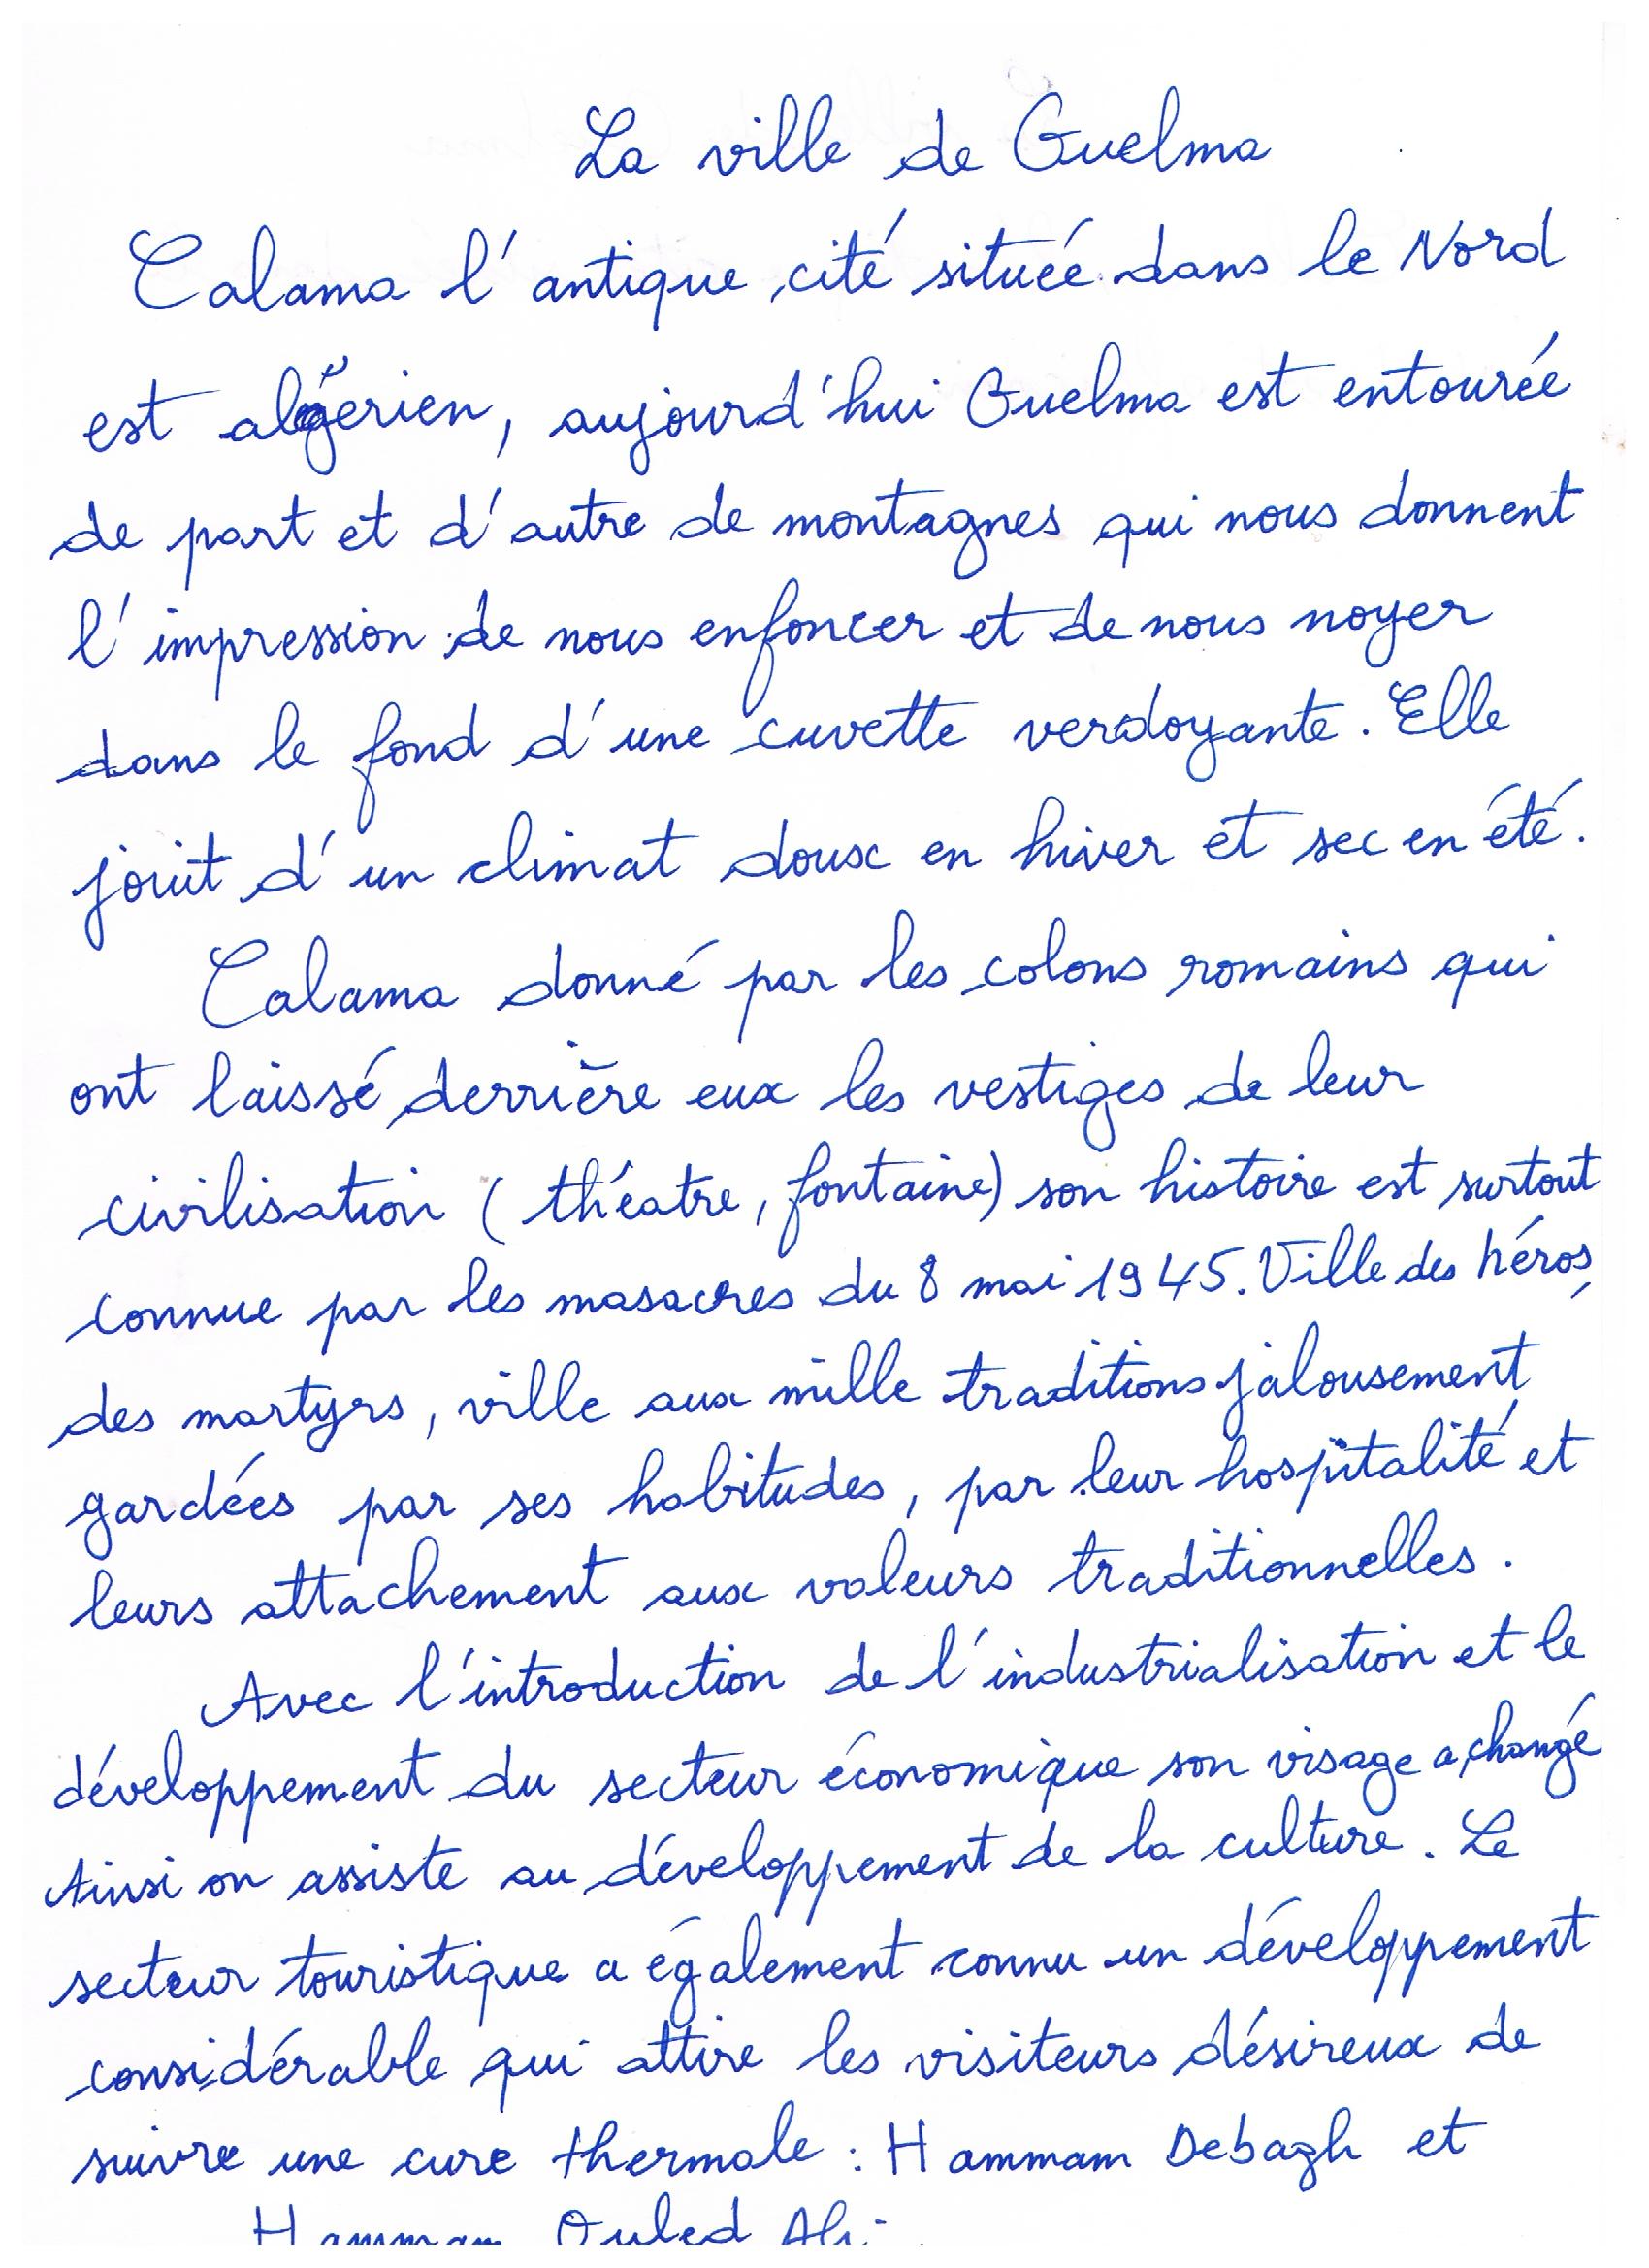 La ville de Guelma
Calama l'antique, cité située dans le Nord
est algérien, aujourd'hui Guelma est entourée
de part et d'autre de montagnes qui nous donnent
l'impression de nous enfoncer et de nous noyer
dans le fond d'une cuvette verdoyante. Elle
jouit d'un climat doux en hiver et sec en été.
Calama donné par les colons romains qui
ont laissé derrière eux les vestiges de leur
civilisation (théatre, fontaine) son histoire est surtout
connue par les masacres du 8 mai 1945. Ville des héros,
des martyrs, ville aux mille traditions jalousement
gardées par ses habitudes, par leur hospitalité et
leurs attachement aux valeurs traditionnelles.
Avec l'introduction de l'industrialisation et le
développement du secteur économique son visage a changé
Ainsi on assiste au développement de la culture. Le
secteur touristique a également connu un développement
considérable qui attire les visiteurs désireux de
suivre une cure thermale : Hammam Debagh et
Hammam Ouled Ali.